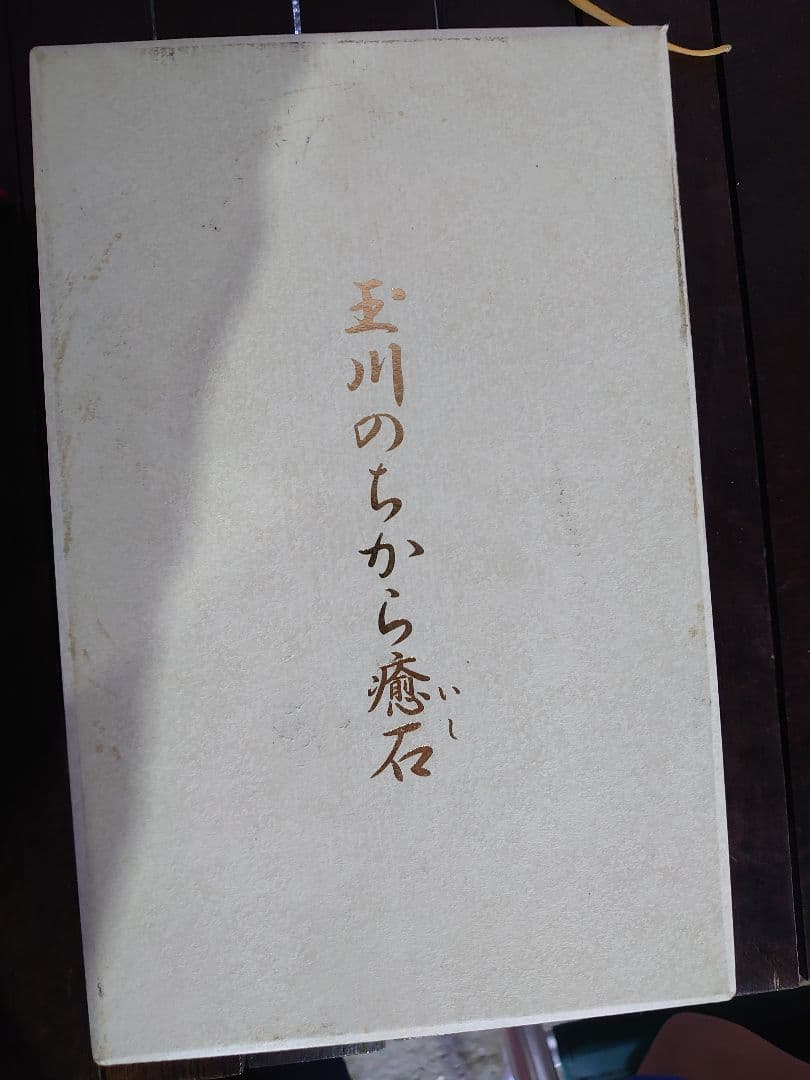 玉川のちから癒石
いし